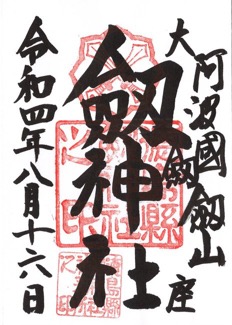 阿波國劔山座
大劔神社
令和四年八月十六日